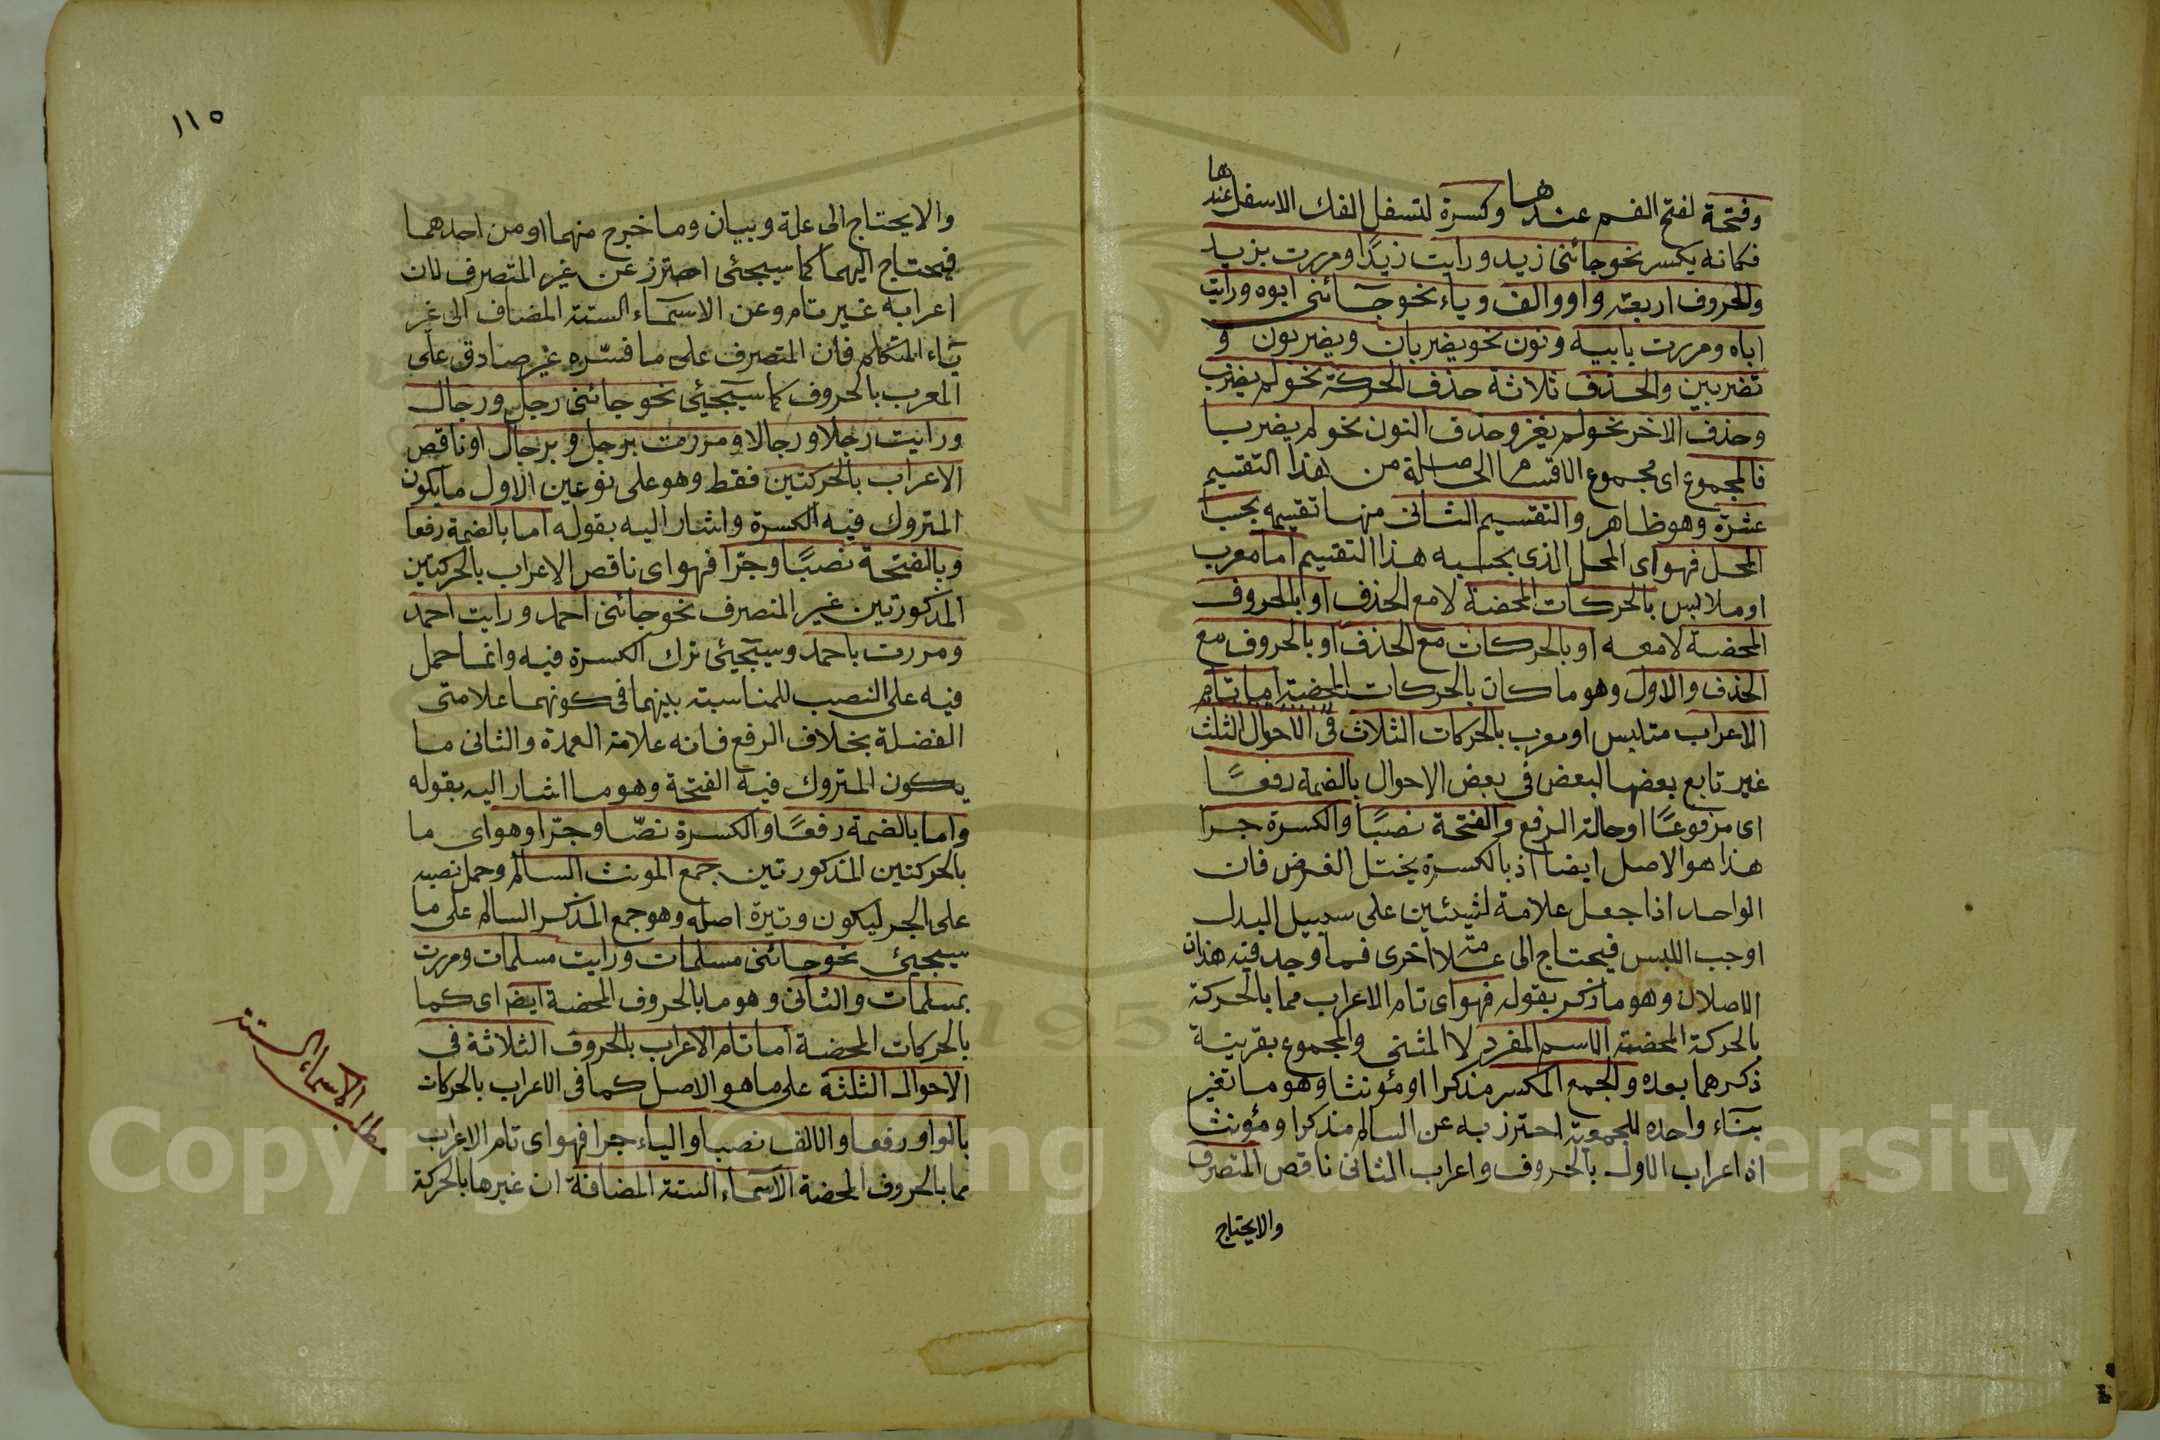 وفتحة لفتح الفم عندها وكسرة لتسفل الفك الاسفل عندها
فكانه يكسر نحو جائنى زيد ورايت زيدًا ومررت بزيد
والحروف اربعة واو والف وياء نحو جآئنى ابوه ورايت
اباه ومررت بابيه ونون نحو يضربان ويضربون و
تضربين والحذف ثلاثة حذف الحركة نحو لم يضرب
وحذف الاخر نحو لم يغز وحذف النون نحو لم يضربا
فالمجموع اى مجموع الاقسام الحاصلة من هذا التقسيم
عشرة وهو ظاهر والتقسيم الثانى منها تقسيمه بحسب
المحل فهو اى المحل الذى بحسبه هذا التقسيم اما معرب
او ملابس بالحركات المحضة لا مع الحذف او بالحروف
المحضة لا معه او بالحركات مع الحذف او بالحروف مع
الحذف والاول وهو ما كان بالحركات المحضة اما تام
الاعراب متلبس او معرب بالحركات الثلاث فى الاحوال الثلث
غير تابع بعضها البعض فى بعض الاحوال بالضمة رفعًا
اى مرفوعًا او حالة الرفع والفتحة نصبًا والكسرة جرا
هذا هو الاصل ايضا اذ بالكسرة يختل الغرض فان
الواحد اذا جعل علامة لشيئين على سبيل البدل
اوجب اللبس فيحتاج الى علامة اخرى فما وجد فيه هذان
الاصلان وهو ما ذكر بقوله فهو اى تام الاعراب مما بالحركة
بالحركة المحضة الاسم المفرد لا المثنى والمجموع بقرينة
ذكرهما بعده والجمع المكسر مذكرا او مؤنثا وهو ما تغير
بنآء واحده للجمعية احترز به عن السالم مذكرا ومؤنثا
اذ اعراب الاول بالحروف واعراب الثانى ناقص المتصرف
والا يحتاج
١١٥
والا يحتاج الى علة وبيان وما خرج منهما او من احدهما
فيحتاج اليهما كما سيجئى احترز عن غير المتصرف لان
اعرابه غير تام وعن الاسمآء الستة المضاف الى غير
يآء المتكلم فان المتصرف على ما فسّره غير صادق على
المعرب بالحروف كما سيجيئى نحو جائنى رجل ورجال
ورايت رجلا ورجالا ومررت برجل وبرجال او ناقص
الاعراب بالحركتين فقط وهو على نوعين الاول ما يكون
المتروك فيه الكسرة واشار اليه بقوله اما بالضمة رفعا
وبالفتحة نصبًا وجرّا فهو اى ناقص الاعراب بالحركتين
المذكورتين غير المنصرف نحو جائنى احمد ورايت احمد
ومررت باحمد وسيجيئى ترك الكسرة فيه وانما حمل
فيه على النصب للمناسبة بينهما فى كونهما علامتى
الفضلة بخلاف الرفع فانه علامة العمدة والثانى ما
يكون المتروك فيه الفتحة وهو ما اشار اليه بقوله
واما بالضمة رفعًا والكسرة نصّبا وجرّا وهو اى ما
بالحركتين المذكورتين جمع المونث السالم وحمل نصبه
على الجر ليكون وتيرة اصله وهو جمع المذكر السالم على ما
سيجيئ نحو جائنى مسلمات ورايت مسلمات ومررت
بمسلمات والثانى وهو ما بالحروف المحضة ايضا اى كما
بالحركات المحضة اما تام الاعراب بالحروف الثلاثة فى
الاحوال الثلثة على ما هو الاصل كما فى الاعراب بالحركات
بالواو رفعا والالف نصبا والياء جرا فهو اى تام الاعراب
مما بالحروف المحضة الاسمآء الستة المضافة ان غيرها بالحركة
مطلب الاسماء الستة
Copyright © King Saud University
1957